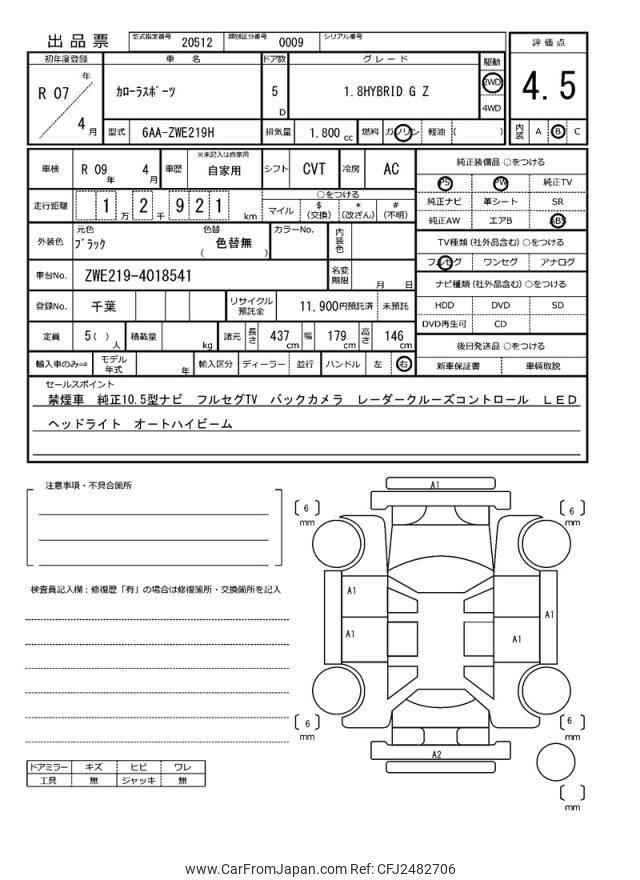 出品票 型式指定番号 20512 類別区分番号 0009 シリアル番号
評価点
4.5
初年度登録 車名 ドア数 グレード 駆動
R 07 年 4 月 カローラスポーツ 5 D 1.8HYBRID G Z 2WD 4WD
型式 6AA-ZWE219H 排気量 1,800 cc 燃料 ガソリン 軽油 ( ) 内装 A B C
車検 R 09 年 4 月 車歴 ※未記入は自家用 自家用 シフト CVT 冷房 AC
走行距離 1 万 2 千 9 2 1 km ○をつける マイル $ (交換) * (改ざん) # (不明)
外装色 元色 ブラック 色替 ( 色替無 ) カラーNo. 内装色
車台No. ZWE219-4018541 名変期限 月 日
登録No. 千葉 リサイクル預託金 11,900円預託済 未預託
定員 5( ) 人 積載量 kg 諸元 長さ 437 cm 幅 179 cm 高さ 146 cm
輸入車のみ⇒ モデル年式 年 輸入区分 ディーラー 並行 ハンドル 左 右
純正装備品 ○をつける
PS PW 純正TV
純正ナビ 革シート SR
純正AW エアB ABS
TV種類 (社外品含む) ○をつける
フルセグ ワンセグ アナログ
ナビ種類 (社外品含む) ○をつける
HDD DVD SD
DVD再生可 CD
後日発送品 ○をつける
新車保証書 車輌取説
セールスポイント
禁煙車 純正10.5型ナビ フルセグTV バックカメラ レーダークルーズコントロール LED
ヘッドライト オートハイビーム
注意事項・不具合箇所
検査員記入欄:修復歴「有」の場合は修復箇所・交換箇所を記入
ドアミラー キズ ヒビ ワレ
工具 無 ジャッキ 無
A1
[ 6 ] mm
[ 6 ] mm
A1
A1
A1
A1
[ 6 ] mm
[ 6 ] mm
A2
[ ] mm
www.CarFromJapan.com Ref: CFJ2482706